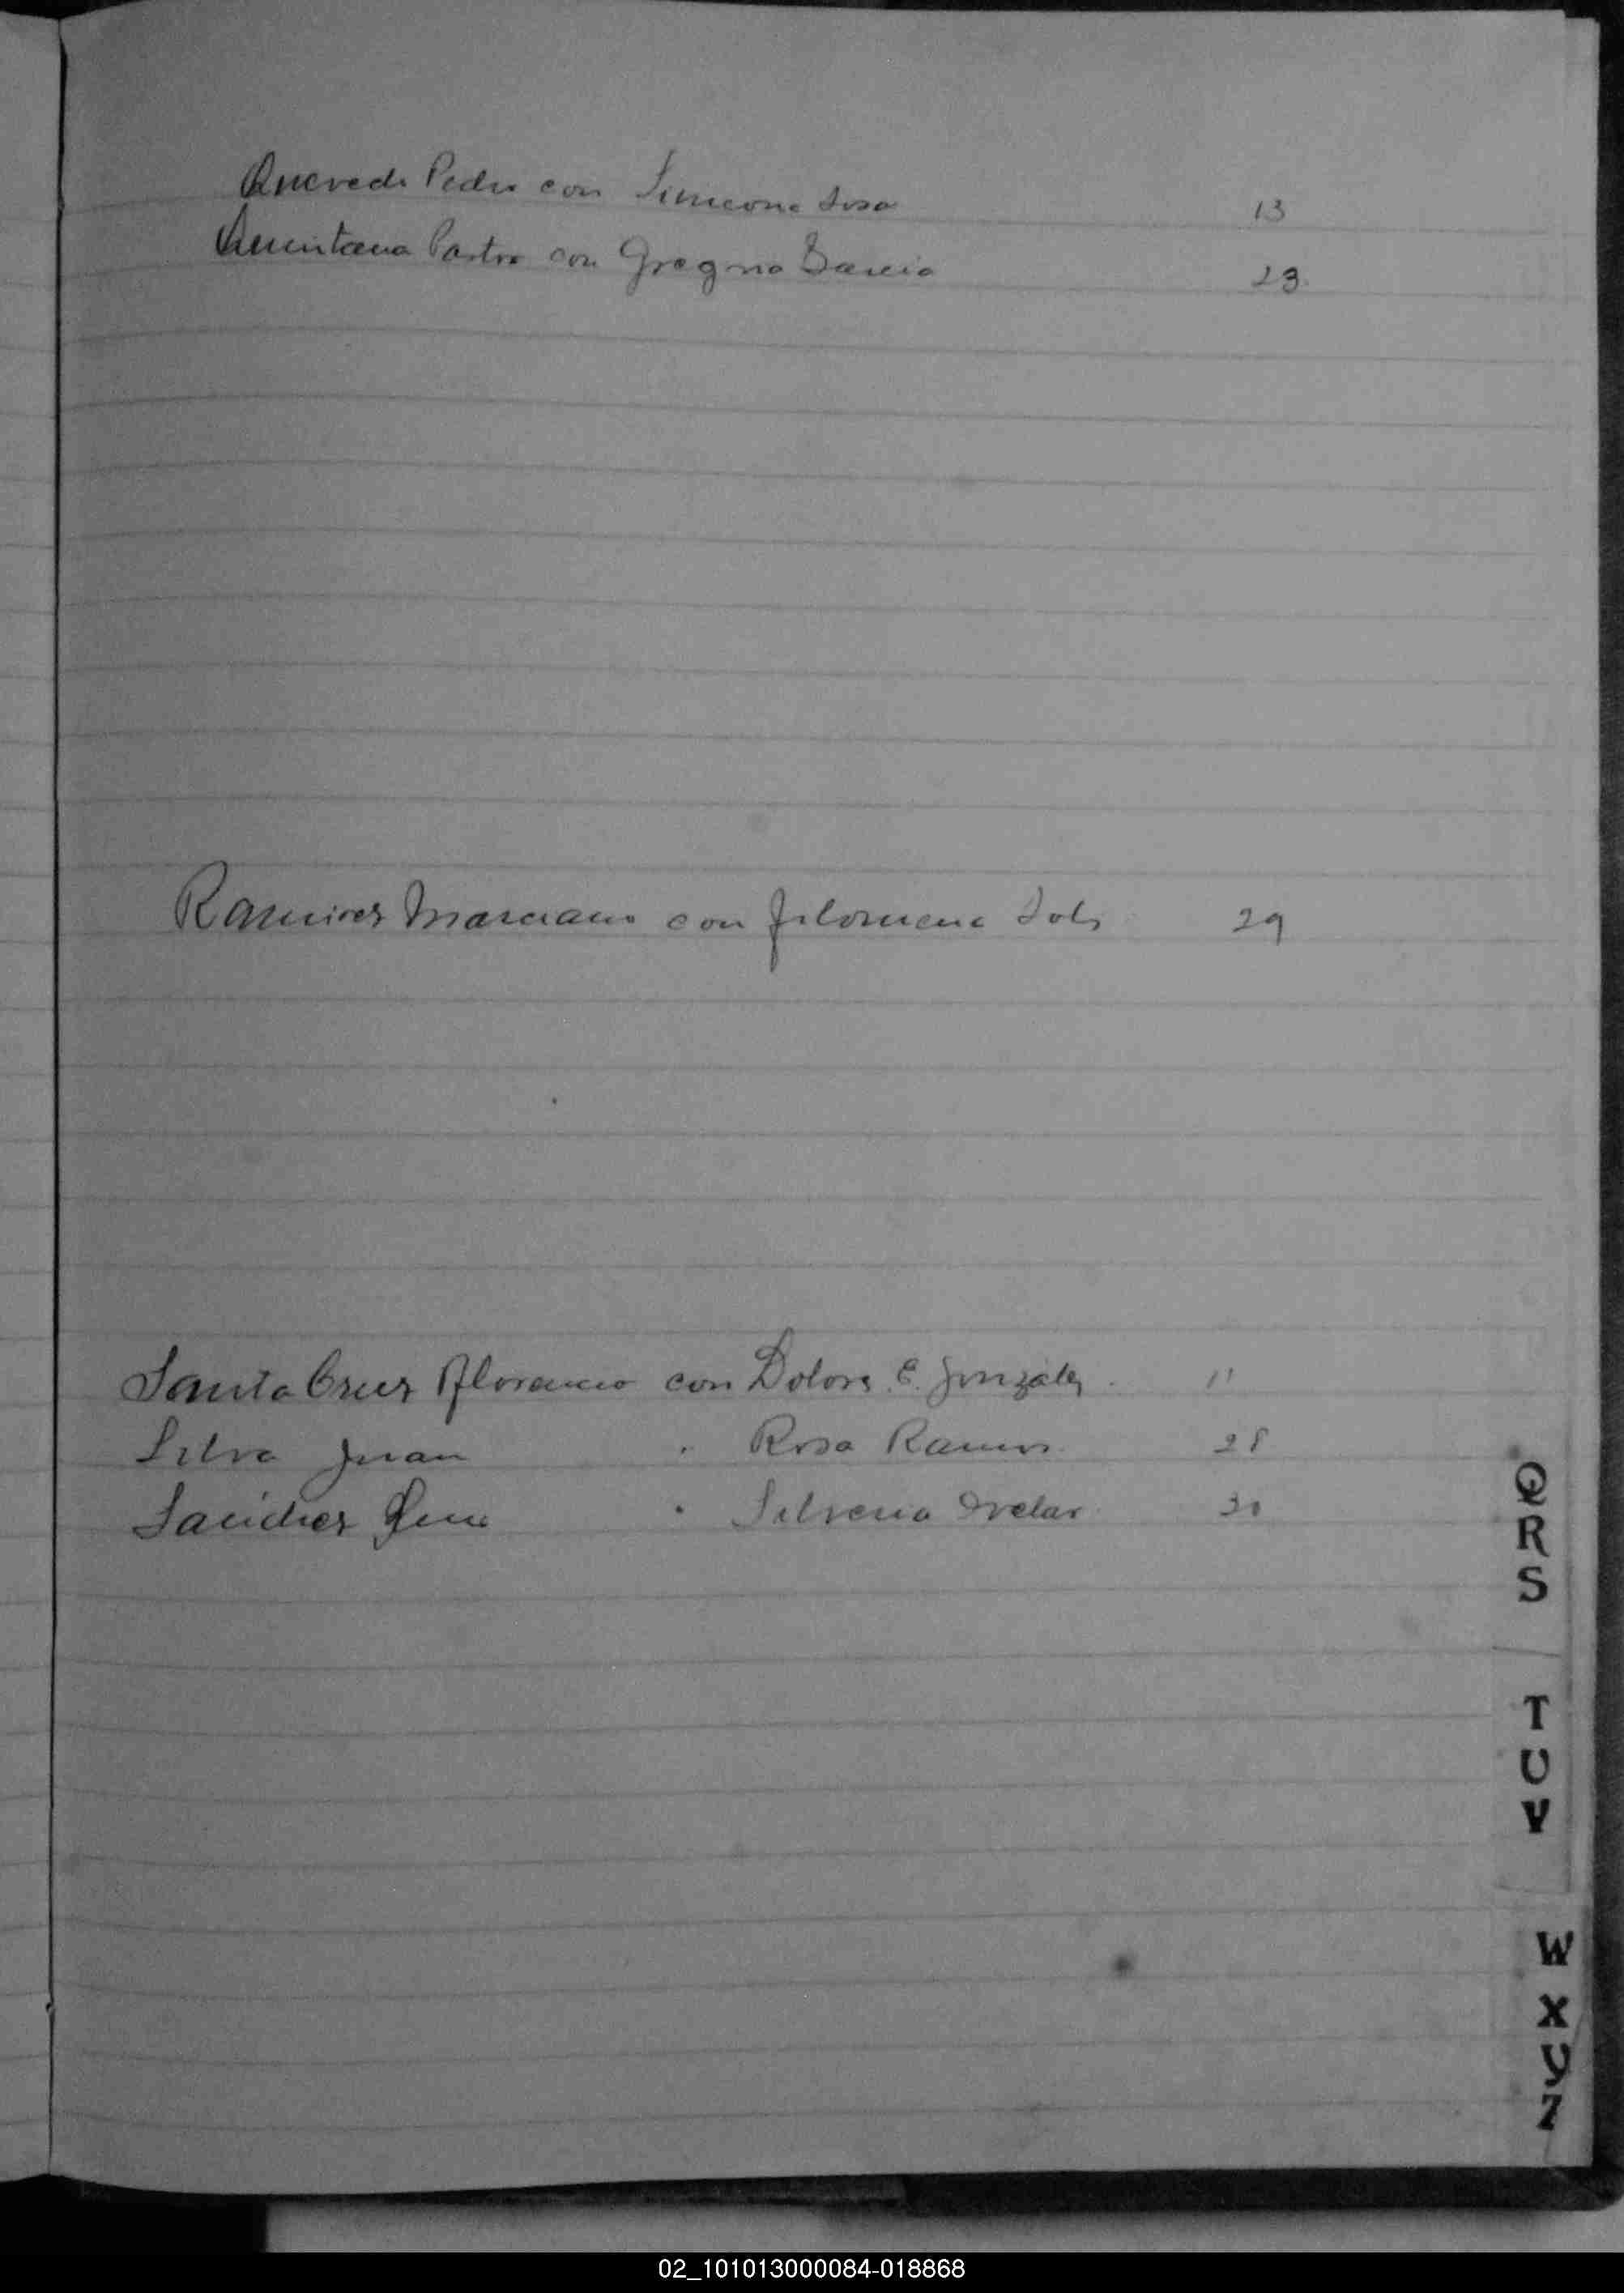 Quevedo Pedro con Simeona Sosa 13
Quintana Pastor con Gregoria Garcia 23
Ramirez Marciano con Filomena Solis 29
Santa Cruz Florencio con Dolores E. Gonzalez 11
Silva Juan " Rosa Ramos 28
Sanchez " Silveria 30
Q
R
S
T
U
V
W
X
Y
Z
02_101013000084-018868